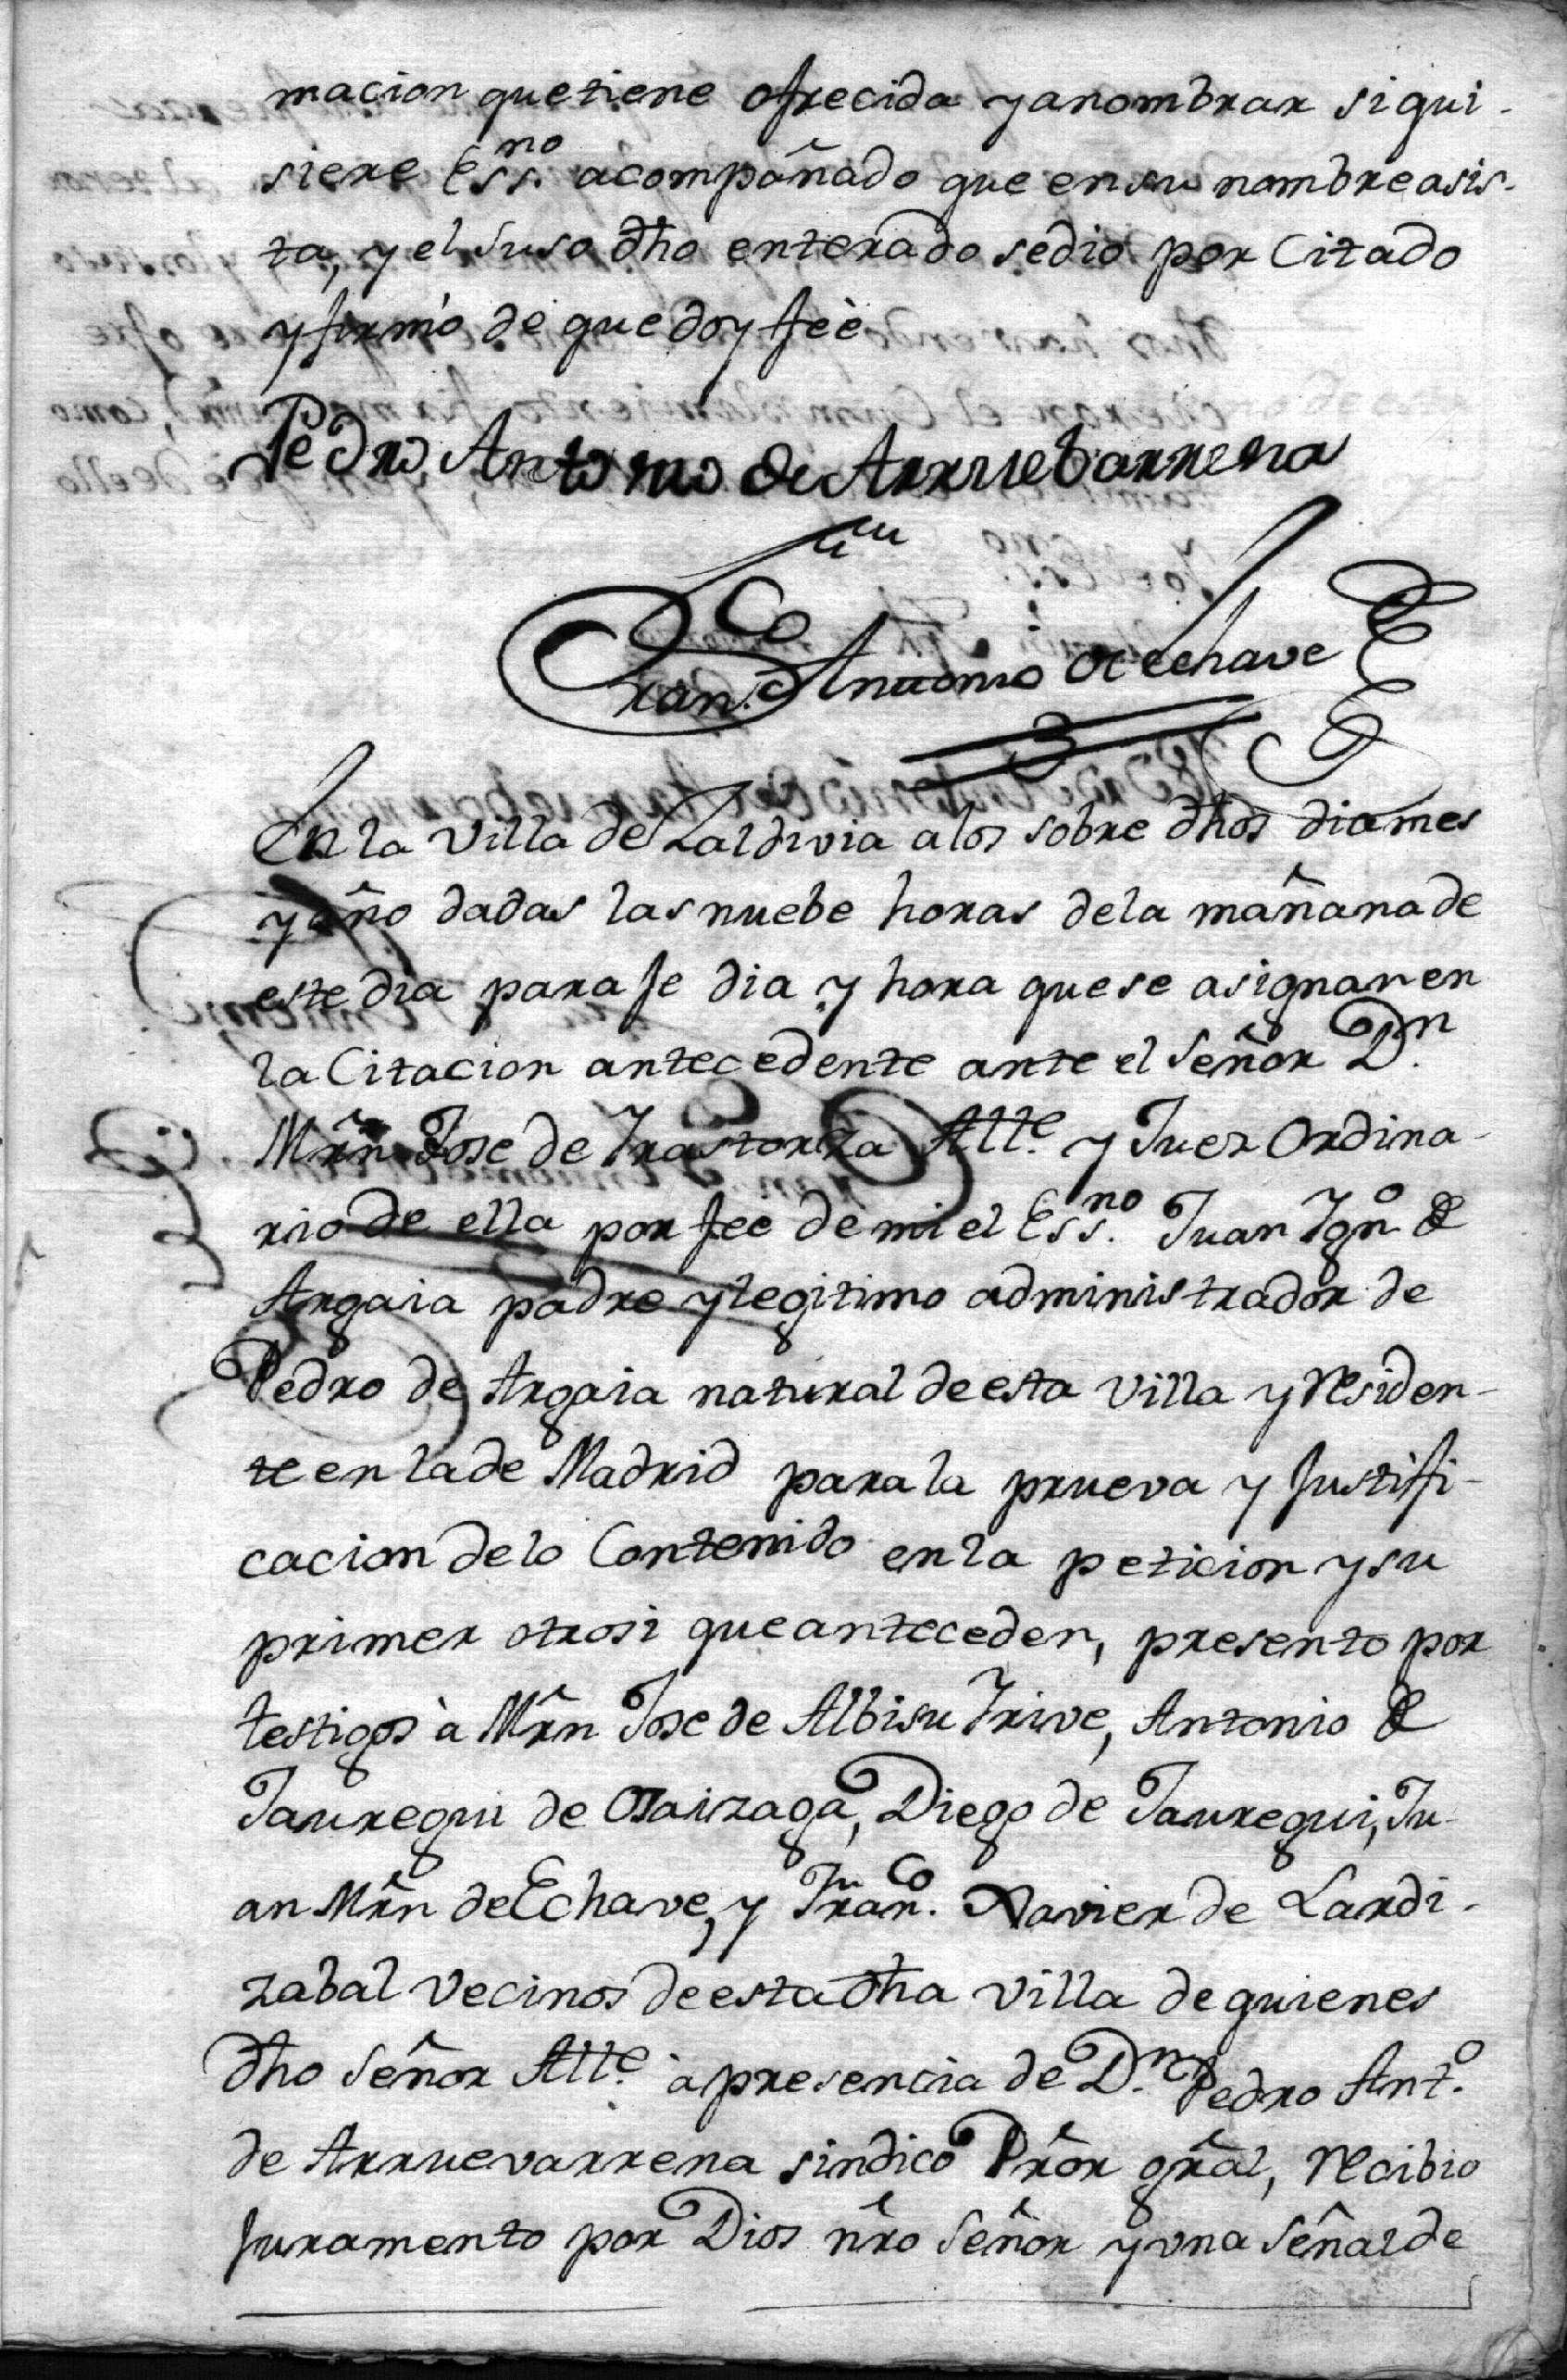 macion que tiene ofrecida y a nombrar si qui-
siere Ess.no acompañado que en su nombre asis-
ta, y el suso dho enterado se dio por Citado
y firmó de que doy feè
Pedro Antonio de Arruebarrena
Fran.co Antonio de Echave
En la Villa de Zaldivia a los sobre dhos dia mes
y año dadas las nuebe horas de la mañana de
este dia para fe dia y hora que se asignar en
la Citacion antecedente ante el Señor D.n
Mrn Jose de Irastorza Alle. y Juez Ordina-
rio de ella por fee de mi el Ess.no Juan Ign.o de
Argaia padre y legitimo administrador de
Pedro de Argaia natural de esta Villa y residen-
te en la de Madrid para la prueva y Justifi-
cacion de lo Contenido en la peticion y su
primer otrosi que anteceden, presento por
testigos à Mrn Jose de Albisu Irive, Antonio de
Jauregui de Osaizaga, Diego de Jauregui, Ju-
an Mrn de Echave, y Fran.co Xavier de Lardi-
zabal Vecinos de esta dha Villa de quienes
dho Señor Alle. à presencia de D.n Pedro Ant.o
de Arruevarrena sindico Prôr grâl, recibio
Juramento por Dios nro Señor y una Señal de